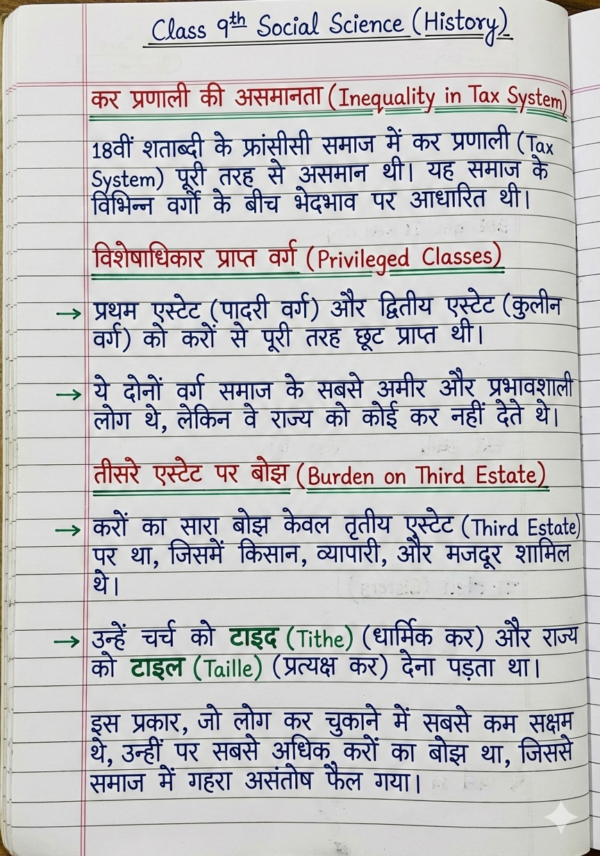 Class 9th Social Science (History)
कर प्रणाली की असमानता (Inequality in Tax System)
18वीं शताब्दी के फ्रांसीसी समाज में कर प्रणाली (Tax
System) पूरी तरह से असमान थी। यह समाज के
विभिन्न वर्गों के बीच भेदभाव पर आधारित थी।
विशेषाधिकार प्राप्त वर्ग (Privileged Classes)
→ प्रथम एस्टेट (पादरी वर्ग) और द्वितीय एस्टेट (कुलीन
वर्ग) को करों से पूरी तरह छूट प्राप्त थी।
→ ये दोनों वर्ग समाज के सबसे अमीर और प्रभावशाली
लोग थे, लेकिन वे राज्य को कोई कर नहीं देते थे।
तीसरे एस्टेट पर बोझ (Burden on Third Estate)
→ करों का सारा बोझ केवल तृतीय एस्टेट (Third Estate)
पर था, जिसमें किसान, व्यापारी, और मजदूर शामिल
थे।
→ उन्हें चर्च को टाइद (Tithe) (धार्मिक कर) और राज्य
को टाइल (Taille) (प्रत्यक्ष कर) देना पड़ता था।
इस प्रकार, जो लोग कर चुकाने में सबसे कम सक्षम
थे, उन्हीं पर सबसे अधिक करों का बोझ था, जिससे
समाज में गहरा असंतोष फैल गया।